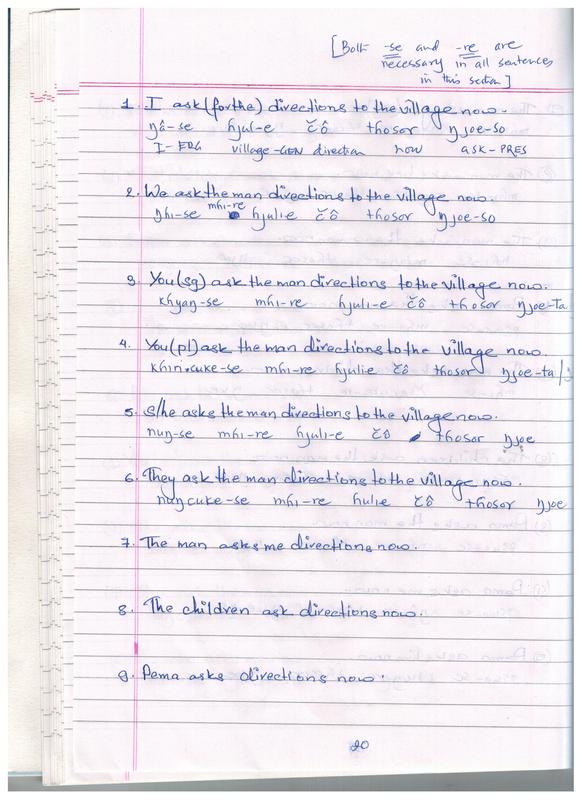 [Both -se and -re are
necessary in all sentences
in this section]
1. I ask (for the) directions to the village now.
ŋâ-se ɦjul-e čô thosor ŋjoe-so
I-ERG village-GEN direction now ask-PRES
2. We ask the man directions to the village now.
ŋhi-se mɦi-re ɦjulie čô thosor ŋjoe-so
3. You (sg) ask the man directions to the village now.
khyaŋ-se mɦi-re ɦjuli-e čô thosor ŋjoe-ta
4. You (pl) ask the man directions to the village now.
khin.cuke-se mɦi-re ɦjulie čô thosor ŋjoe-ta/
5. S/he asks the man directions to the village now.
nuŋ-se mɦi-re ɦjuli-e čô thosor ŋjoe
6. They ask the man directions to the village now.
nuŋcuke-se mɦi-re ɦulie čô thosor ŋjoe
7. The man asks me directions now.
8. The children ask directions now.
9. Pema asks directions now.
20